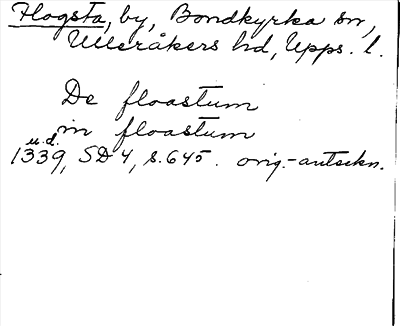 Flogsta, by, Bondkyrka sn,
Ulleråkers hd, Upps. l.
De floastum
in floastum
u.d.
1339, SD 4, s. 645. orig.-anteckn.